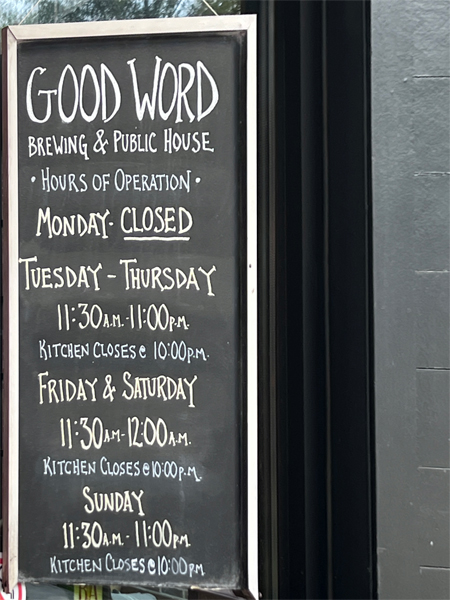 GOOD WORD
BREWING & PUBLIC HOUSE
• HOURS OF OPERATION •
MONDAY - CLOSED
TUESDAY - THURSDAY
11:30 A.M. - 11:00 P.M.
KITCHEN CLOSES @ 10:00 P.M.
FRIDAY & SATURDAY
11:30 AM - 12:00 A.M.
KITCHEN CLOSES @ 10:00 P.M.
SUNDAY
11:30 A.M. - 11:00 PM
KITCHEN CLOSES @ 10:00 PM